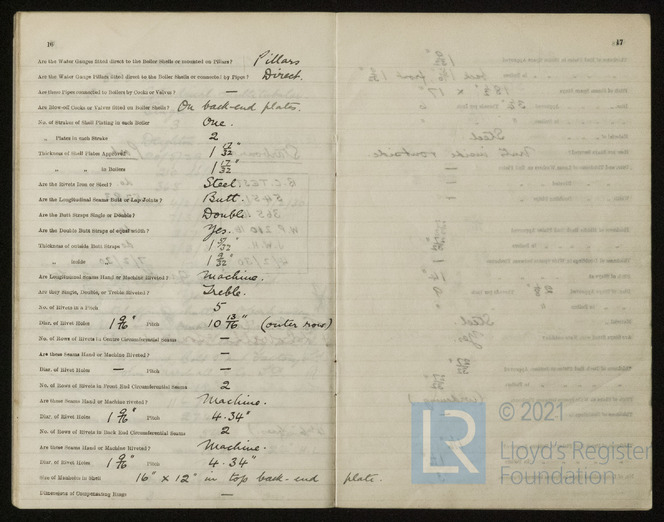 16
Are the Water Gauges fitted direct to the Boiler Shells or mounted on Pillars? Pillars
Are the Water Gauge Pillars fitted direct to the Boiler Shells or connected by Pipes? Direct.
Are these Pipes connected to Boilers by Cocks or Valves? —
Are Blow-off Cocks or Valves fitted on Boiler Shells? On back-end plates.
No. of Strakes of Shell Plating in each Boiler One.
„ Plates in each Strake 2
Thickness of Shell Plates Approved 1 17/32"
„ „ in Boilers 1 17/32"
Are the Rivets Iron or Steel? Steel.
Are the Longitudinal Seams Butt or Lap Joints? Butt.
Are the Butt Straps Single or Double? Double.
Are the Double Butt Straps of equal width? Yes.
Thickness of outside Butt Straps
„ inside „
Are Longitudinal Seams Hand or Machine Riveted? Machine.
Are they Single, Double, or Treble Riveted? Treble.
No. of Rivets in a Pitch 5
Diar. of Rivet Holes 1 9/16" Pitch 10 13/16" (outer row)
No. of Rows of Rivets in Centre Circumferential Seams —
Are these Seams Hand or Machine Riveted? —
Diar. of Rivet Holes — Pitch —
No. of Rows of Rivets in Front End Circumferential Seams 2
Are these Seams Hand or Machine riveted? Machine.
Diar. of Rivet Holes 1 9/16" Pitch 4.34"
No. of Rows of Rivets in Back End Circumferential Seams 2
Are these Seams Hand or Machine Riveted? Machine.
Diar. of Rivet Holes 1 9/16" Pitch 4.34"
Size of Manholes in Shell 16" × 12" in top back-end plate.
Dimensions of Compensating Rings —
17
© 2021
LR
Lloyd's Register
Foundation